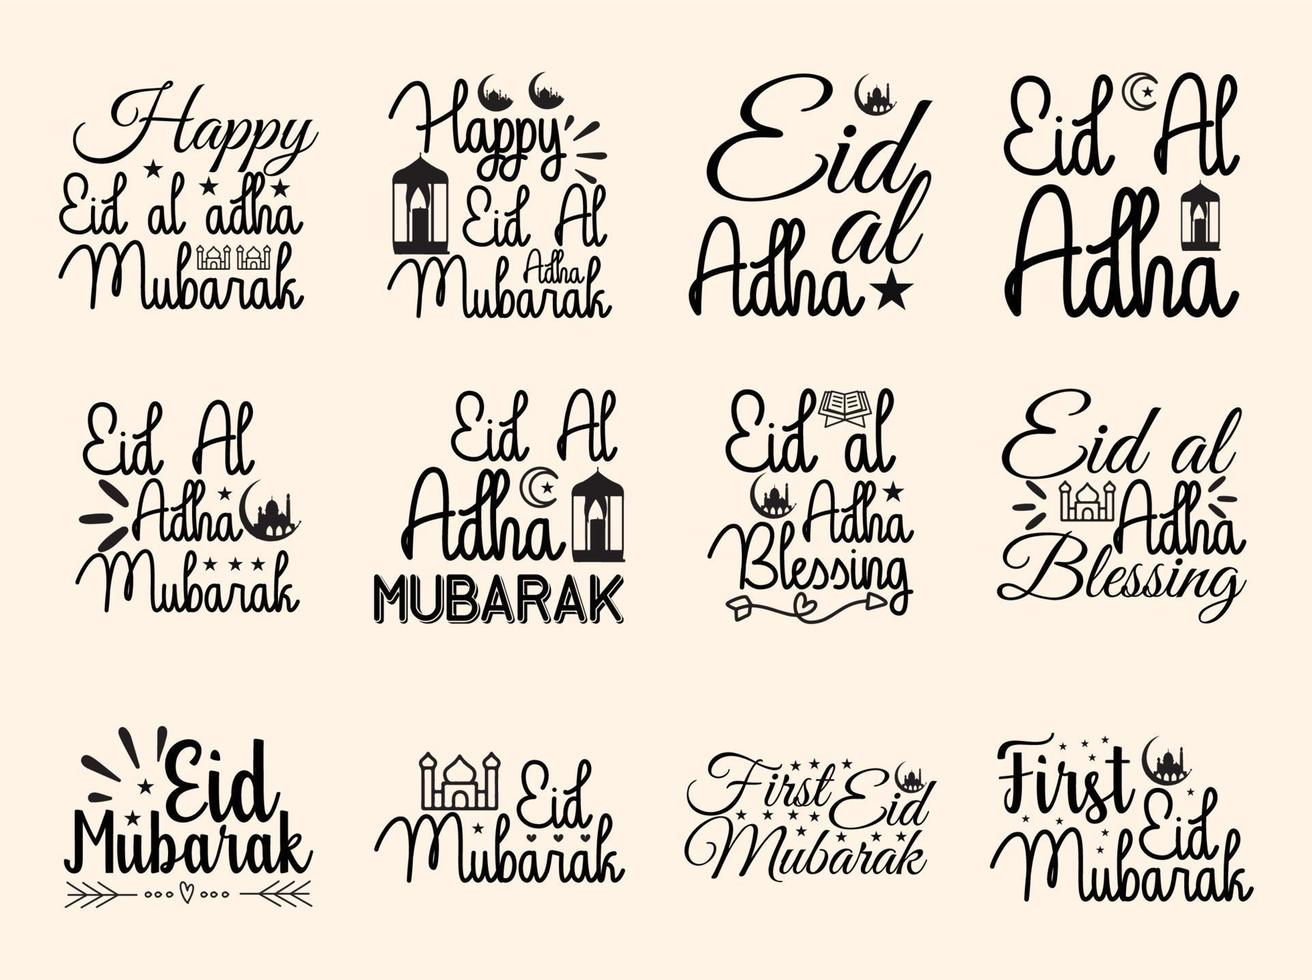 Happy
Eid al adha
Mubarak
Happy
Eid Al
Adha
Mubarak
Eid
al
Adha
Eid Al
Adha
Eid Al
Adha
Mubarak
Eid Al
Adha
MUBARAK
Eid al
Adha
Blessing
Eid al
Adha
Blessing
Eid
Mubarak
Eid
Mubarak
First Eid
Mubarak
First
Eid
Mubarak